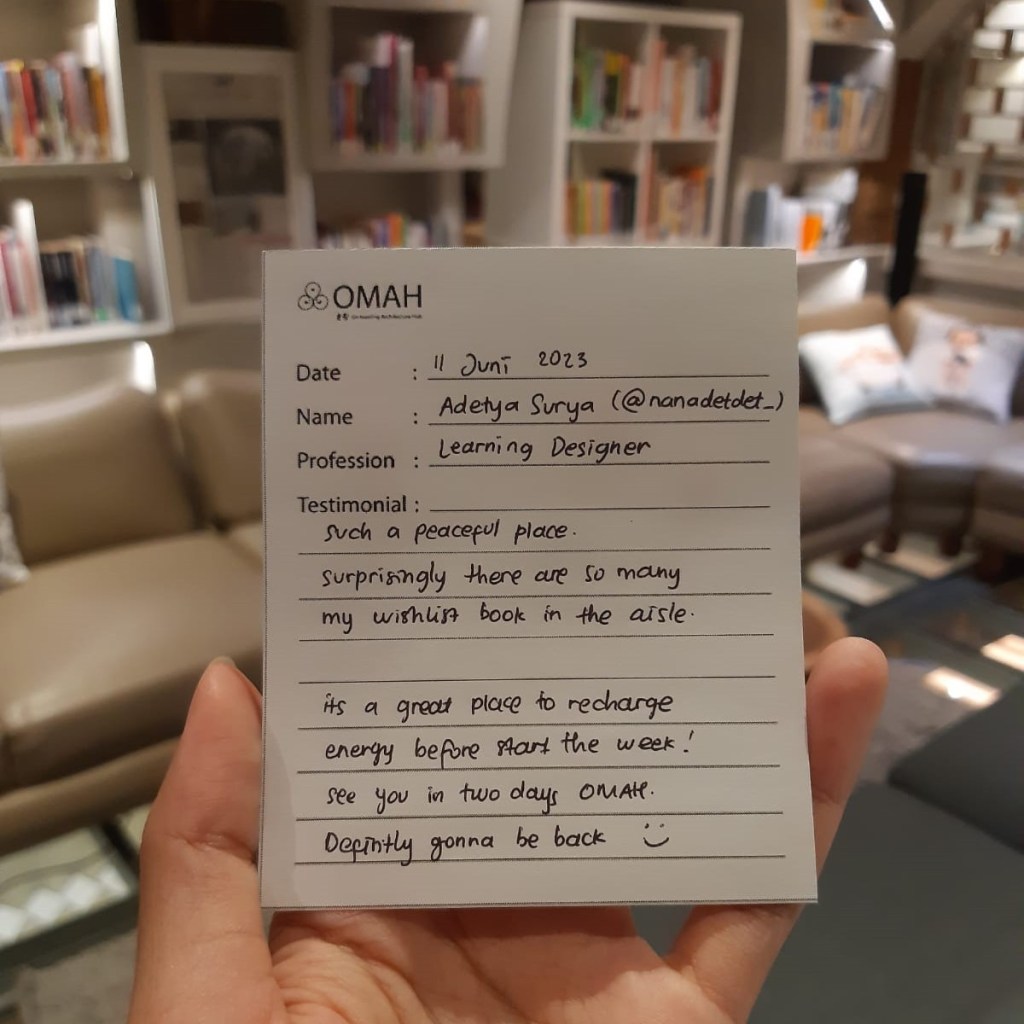 OMAH
Date : 11 Juni 2023
Name : Adetya Surya (@nanadetdet_)
Profession : Learning Designer
Testimonial :
such a peaceful place.
surprisingly there are so many
my wishlist book in the aisle.
its a great place to recharge
energy before start the week!
see you in two days OMAH.
Defintly gonna be back